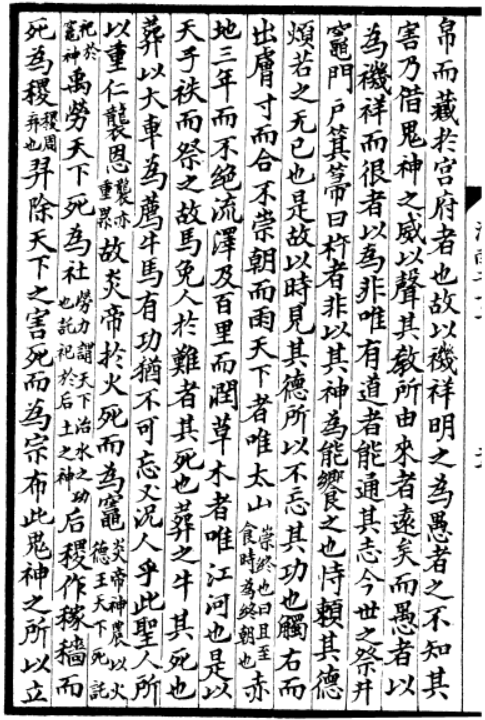 帛而藏於宫府者也故以禨祥明之為愚者之不知其
害乃借鬼神之威以聲其教所由來者遠矣而愚者以
為禨祥而很者以為非唯有道者能通其志今世之祭井
竈門戸箕箒臼杵者非以其神為能饗之也恃賴其德
煩若之无已也是故以時見其德所以不忘其功也觸右而
出膚寸而合不崇朝而雨天下者唯太山崇終也日旦至食時為終朝也赤
地三年而不絶流澤及百里而潤草木者唯江河也是以
天子秩而祭之故馬免人於難者其死也葬之牛其死也
葬以大車為薦牛馬有功猶不可忘又況人乎此聖人所
以重仁襲恩襲亦重累故炎帝於火死而為竈炎帝神農以火德王天下死託
祀於竈神禹勞天下死為社勞力謂天下治水之功也託祀於后土之神后稷作稼穡而
死為稷稷周弃也羿除天下之害死而為宗布此鬼神之所以立